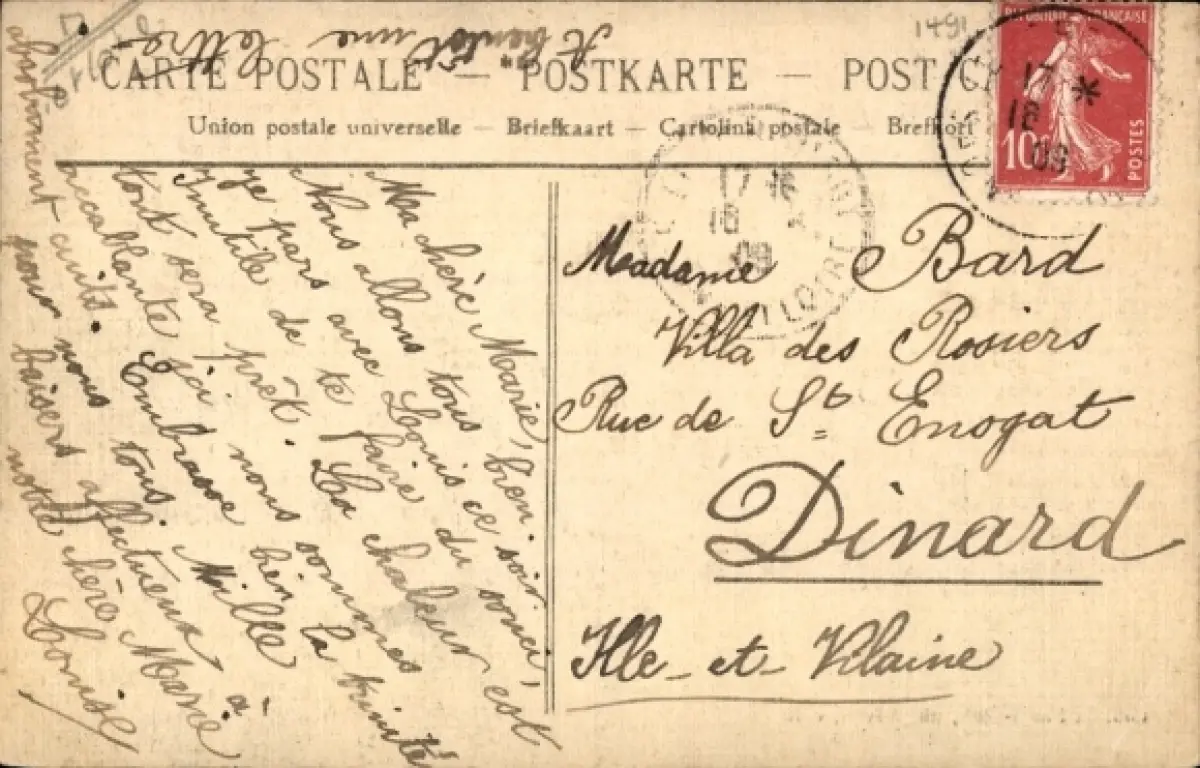 A bientôt une lettre.
1491
CARTE POSTALE — POSTKARTE — POST
Union postale universelle — Briefkaart — Cartolina postale — Brefkort
REPUBLIQUE FRANÇAISE
10c
POSTES
17 *
18
09
17 *
18
09
Ma chère Marie,
Nous allons tous bien.
Je pars avec Louis ce soir.
Inutile de te faire du souci,
tout sera prêt. La chaleur est
accablante ici nous sommes
absolument cuits. Embrasse bien la trinité
pour nous tous. Mille
baisers affectueux à
notre chère Marie
Louise
Madame Bard
Villa des Rosiers
Rue de St Enogat
Dinard
Ille-et-Vilaine